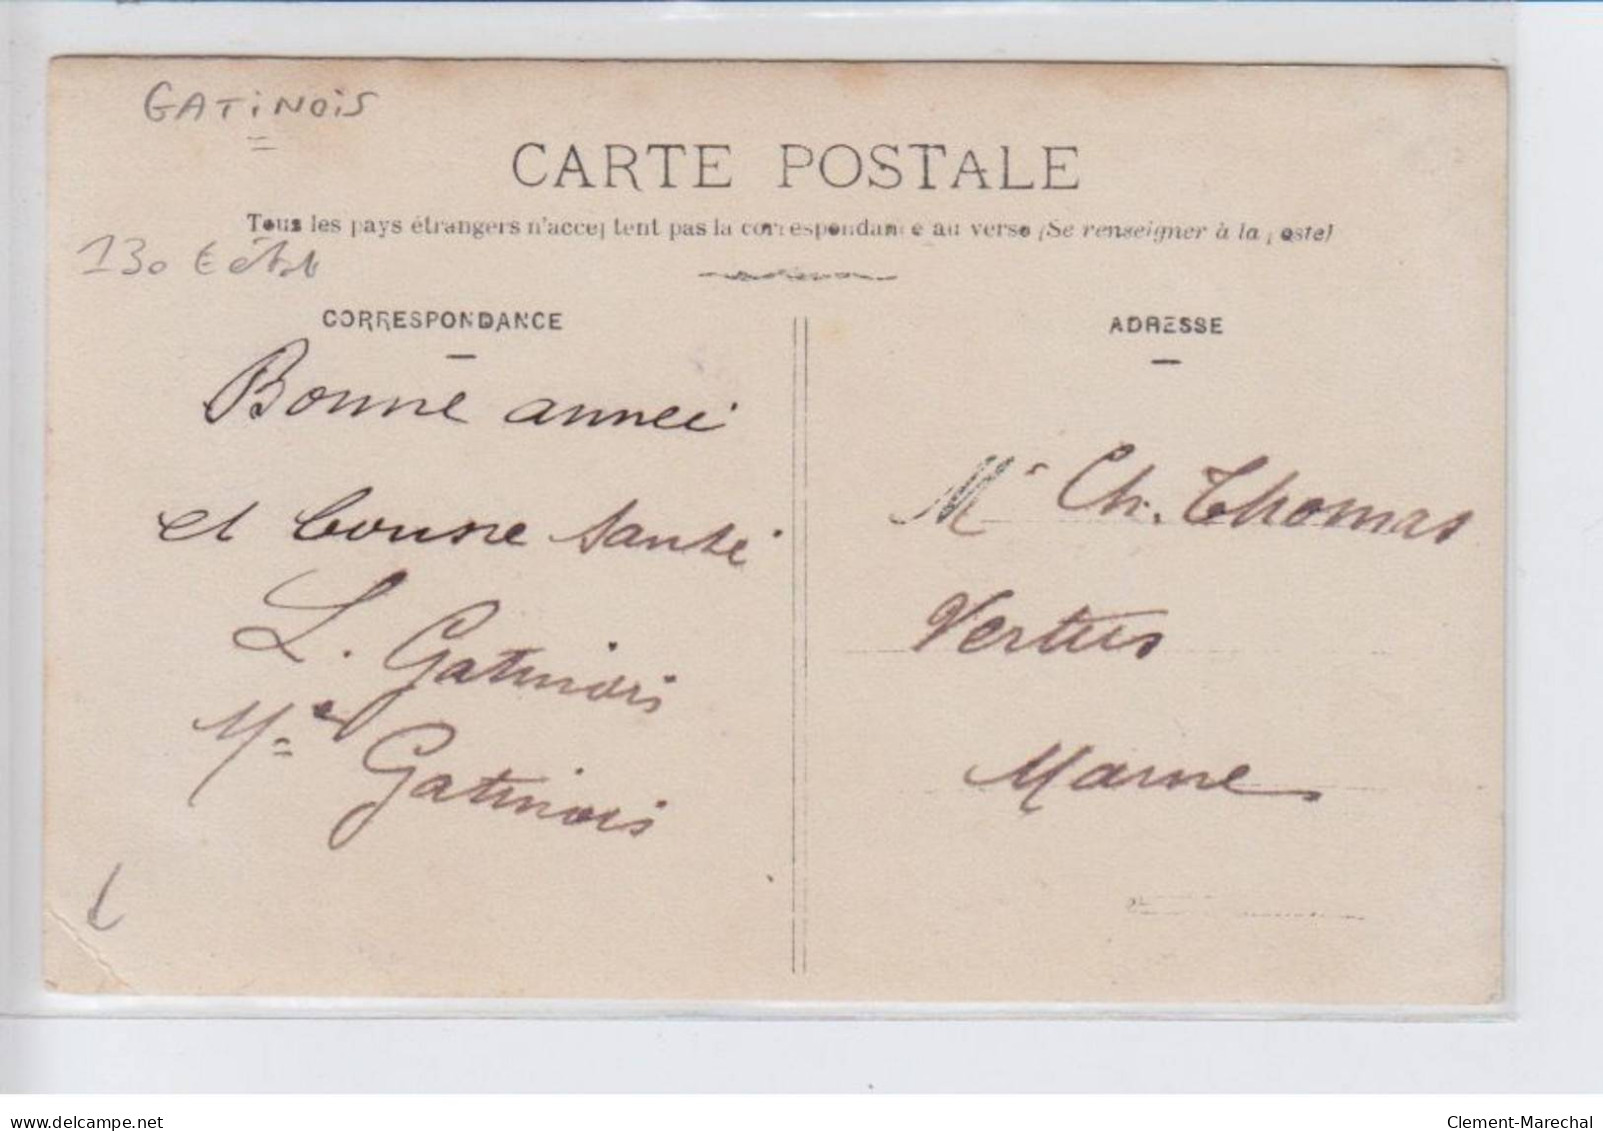 GATINOIS
CARTE POSTALE
Tous les pays étrangers n'acceptent pas la correspondance au verso (Se renseigner à la poste)
130 €
CORRESPONDANCE
ADRESSE
Bonne année
et bonne santé
L. Gatinois
Me Gatinois
Mr Ch. Thomas
Vertus
Marne
delcampe.net
Clement-Marechal